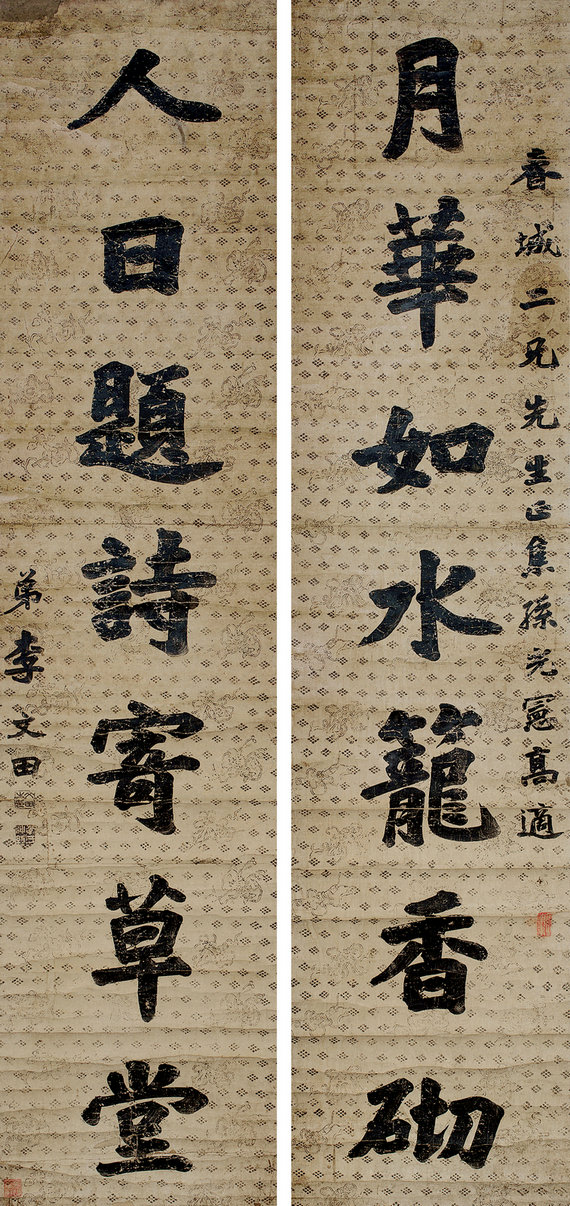 城二兄先生正集孫光憲高適
月華如水籠香砌
人日題詩寄草堂
弟李文田